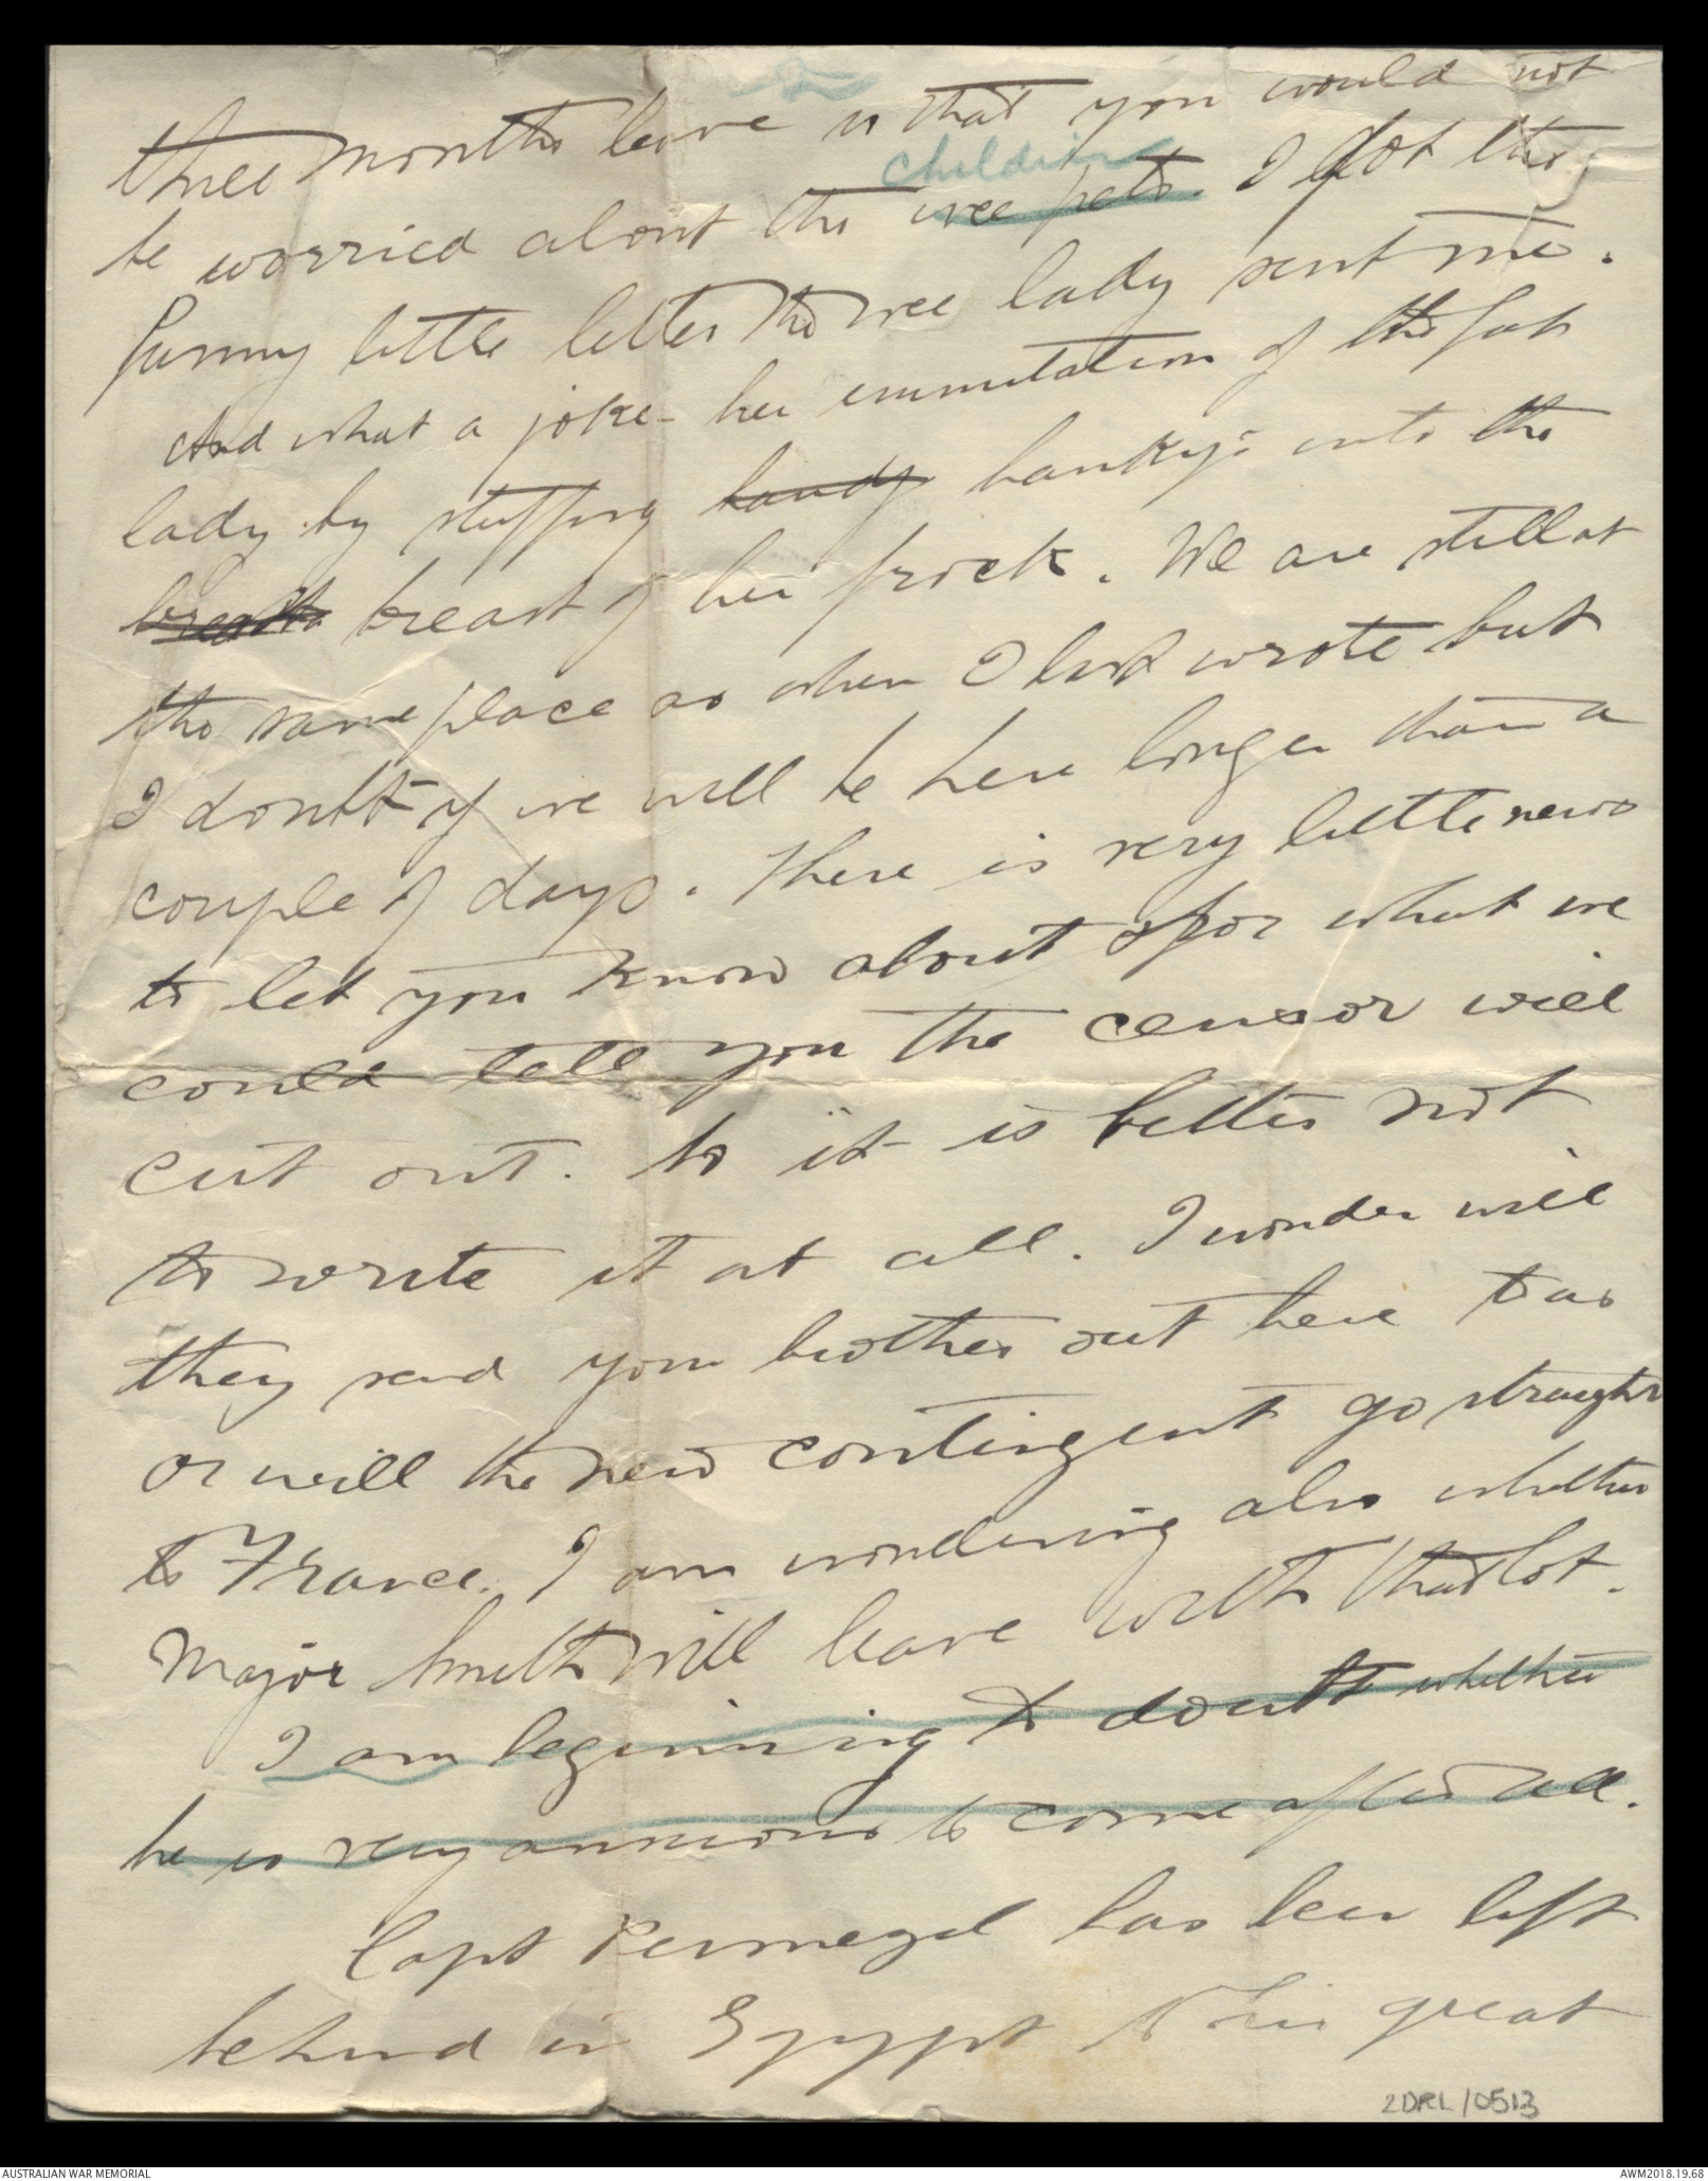 three months leave is that you would not
children
be worried about the wee pets. I got the
funny little letter the wee lady sent me.
And what a joke - her immutation of the fat
lady by stuffing handy hankys into the
breasts breast of her frock. We are still at
the same place as when I last wrote but
I doubt if we will be here longer than a
couple of days. There is very little news
to let you know about & for what we
could tell you the censor will
cut out. So it is better not
to write it at all. I wonder will
they send your brother out here to us
or will the new contingent go straight
to France. I am wondering also whether
Major Smith will leave with that lot.
I am beginning to doubt whether
he is very anxious to come after all.
Capt has been left
behind in Egypt to his great
2DRL/0513
AUSTRALIAN WAR MEMORIAL
AWM2018.19.68